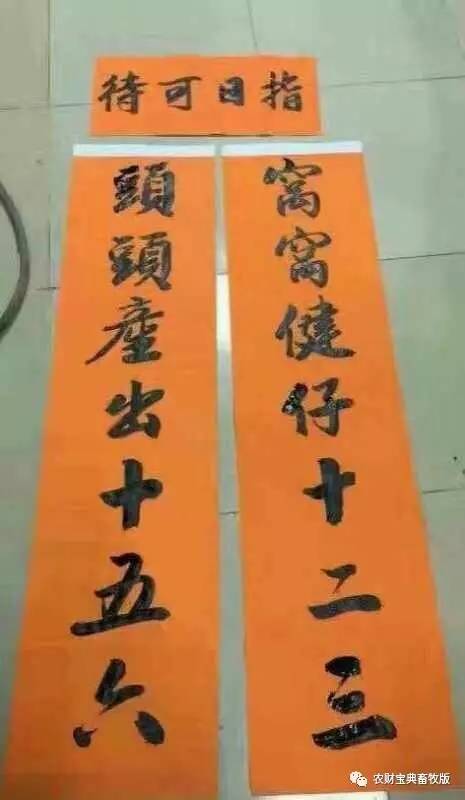 指日可待
窝窝健仔十二三
頭頭産出十五六
农财宝典畜牧版